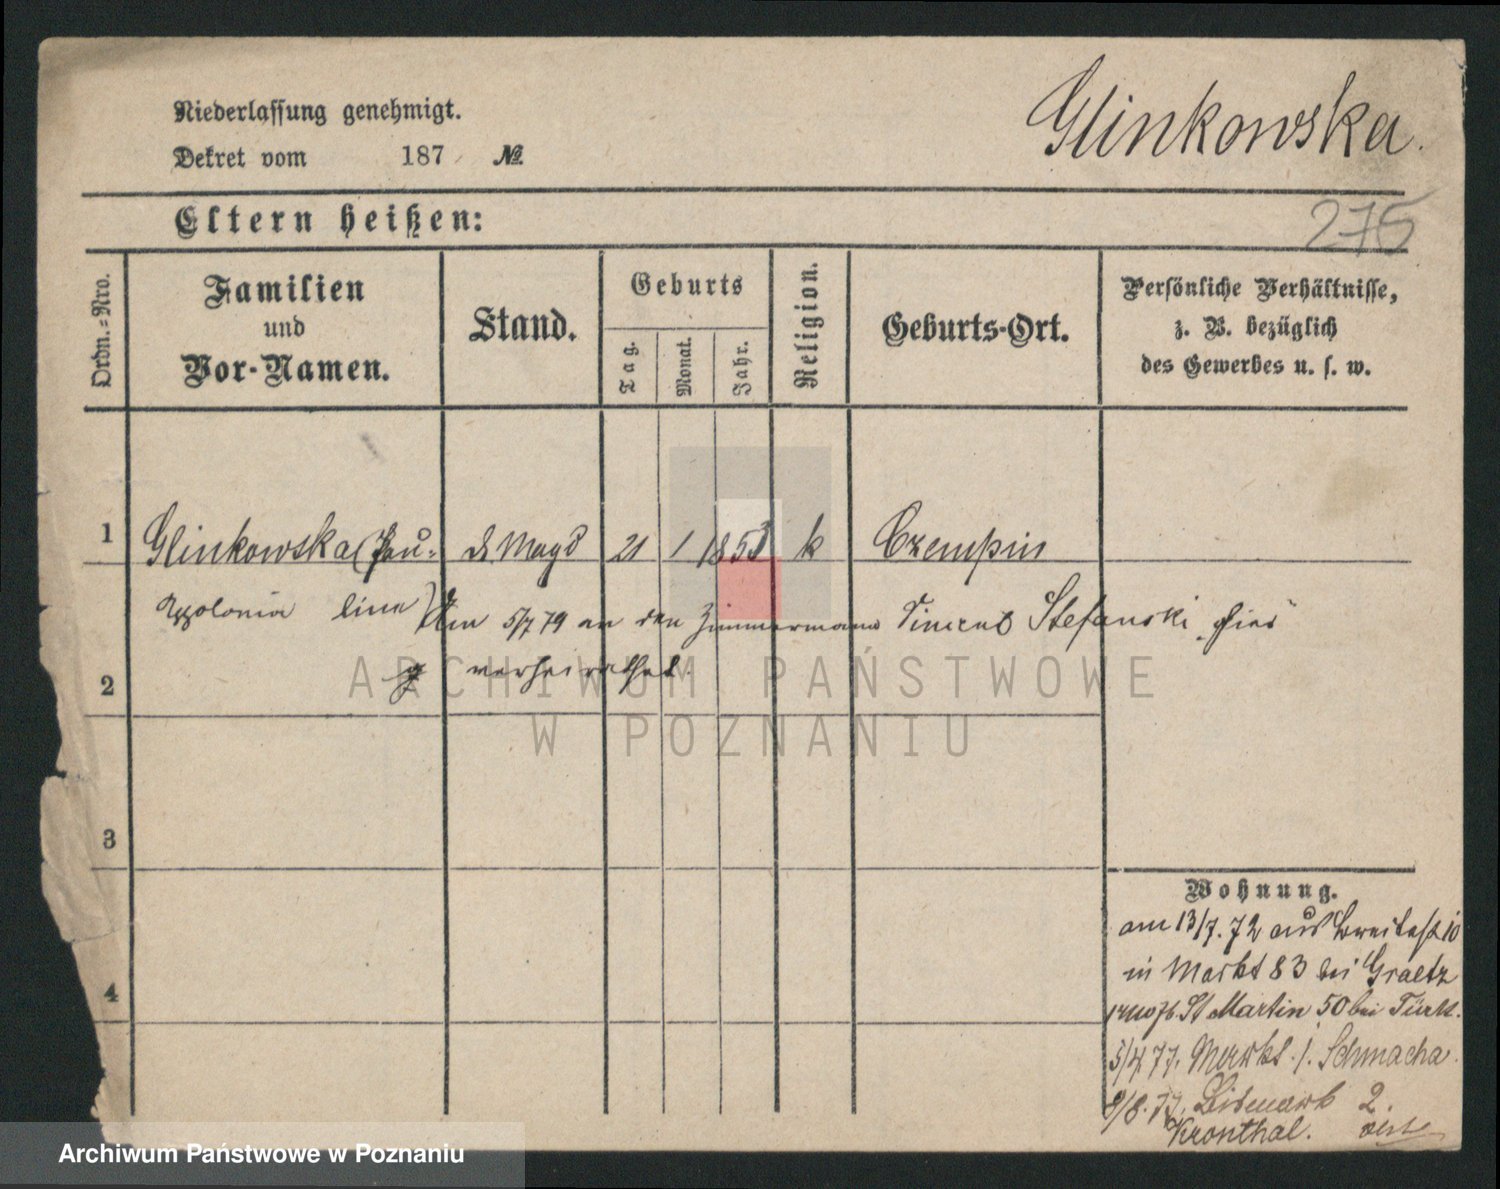 Niederlassung genehmigt.
Glinkowska.
Dekret vom 187 No.
Eltern heißen:
275
Ordn.=Nro.
Familien
und
Vor-Namen.
Stand.
Geburts
Tag.
Monat.
Jahr.
Religion.
Geburts-Ort.
Persönliche Verhältnisse,
z. B. bezüglich
des Gewerbes u. s. w.
1 Glinkowska (Pau= d. Magd 21 1 1853 k Czempin
Apolonia line) Am 5/7 79 an den Zimmermann Vincent Stefanski hier
2 verheirathet.
3
4
Wohnung.
am 13/7. 72 aus Breitestr 10
in Markt 83 bei Graetz
St Martin 50 bei Türk.
5/4 77. Markt Schmacha.
9/8. 77. Bismarck 2.
Kronthal.
ARCHIWUM PAŃSTWOWE
W POZNANIU
Archiwum Państwowe w Poznaniu